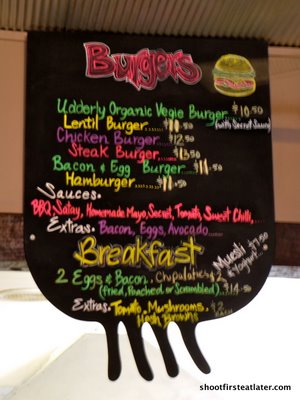 Burgers
Udderly Organic Vegie Burger $10.50
(with Secret Sauce)
Lentil Burger
Chicken Burger $12.50
Steak Burger
Bacon & Egg Burger
Hamburger
Sauces.
BBQ, Satay, Homemade Mayo, Secret, Tomato, Sweet Chilli,
Extras. Bacon, Eggs, Avocado
Breakfast
Muesli $7.50
& Yogurt
2 Eggs & Bacon.
(fried, Poached or Scrambled). $14.50
Extras. Tomato, Mushrooms, $2
Hash Browns
shootfirsteatlater.com